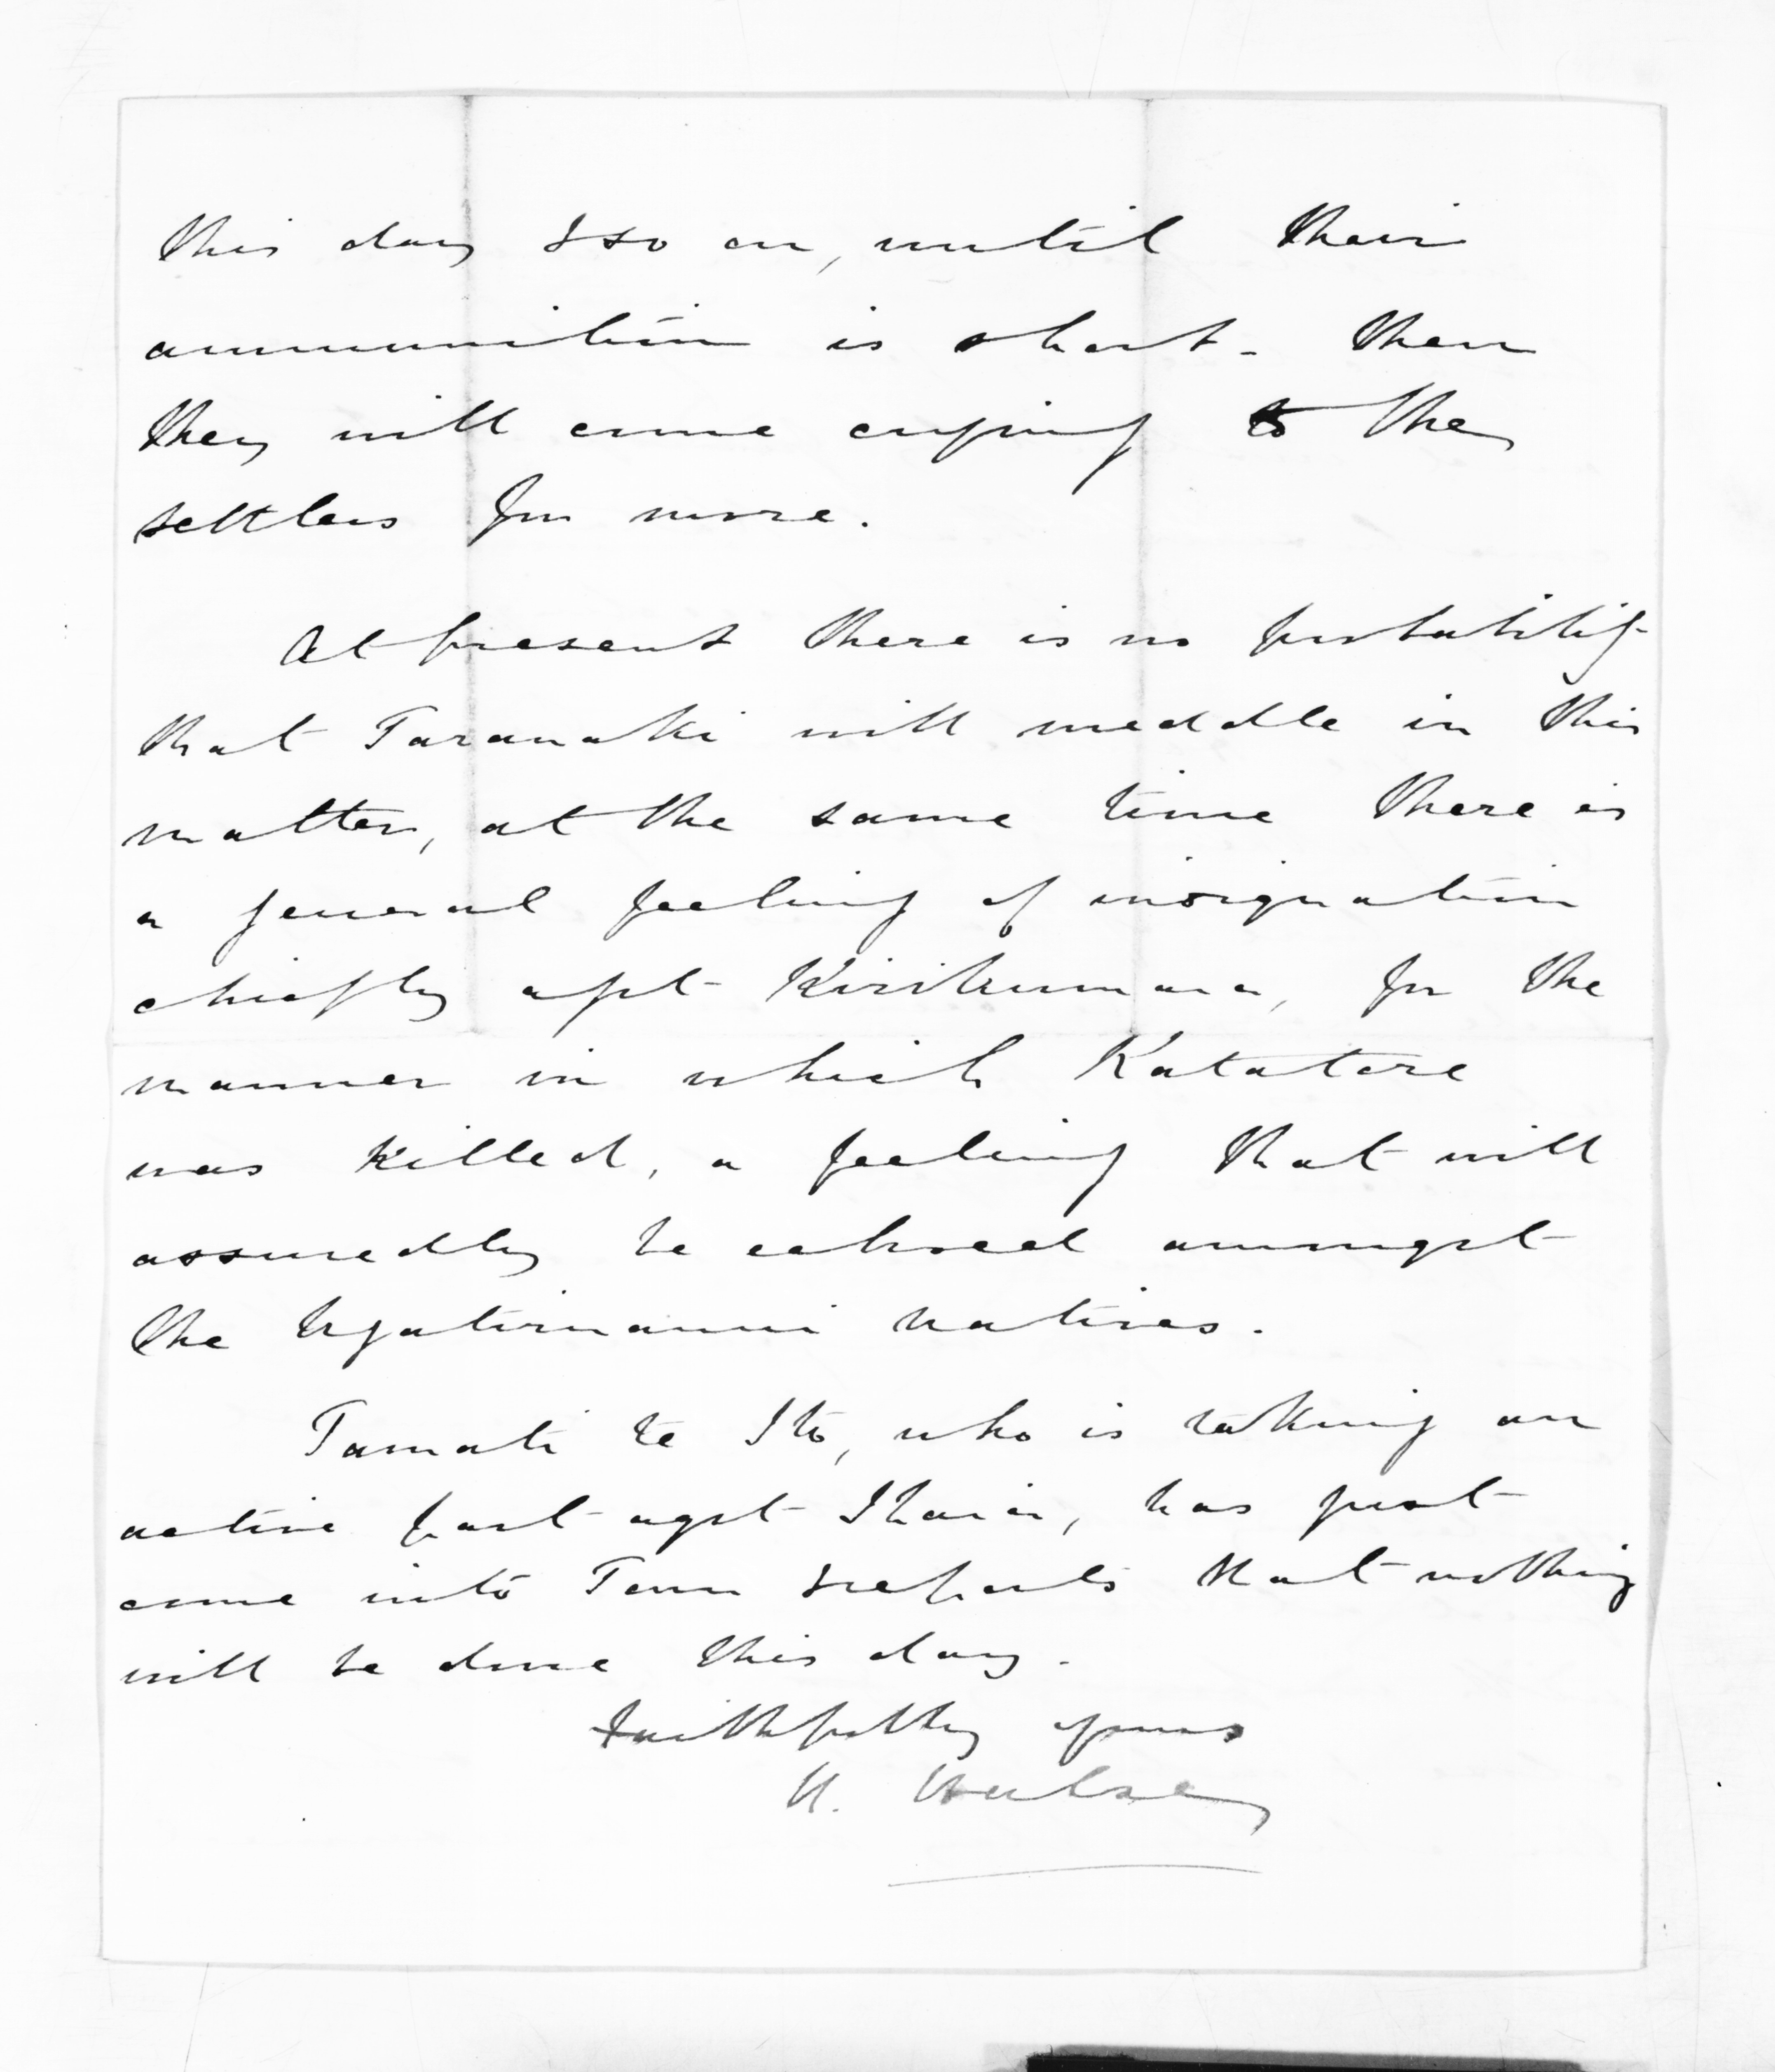 this day & so on, until their
ammunition is short - then
they will come crying to the
settlers for more.
At present there is no probability
that Taranaki will meddle in this
matter, at the same time there is
a general feeling of indignation
chiefly agst Kirikumara, for the
manner in which Katatore
was killed, a feeling that will
assuredly be echoed amongst
the Ngatiruanui natives.
Tamati te Ito, who is taking an
active part agst Ihaia, has just
come into Town & reports that nothing
will be done this day.
Faithfully yours
H. Halse